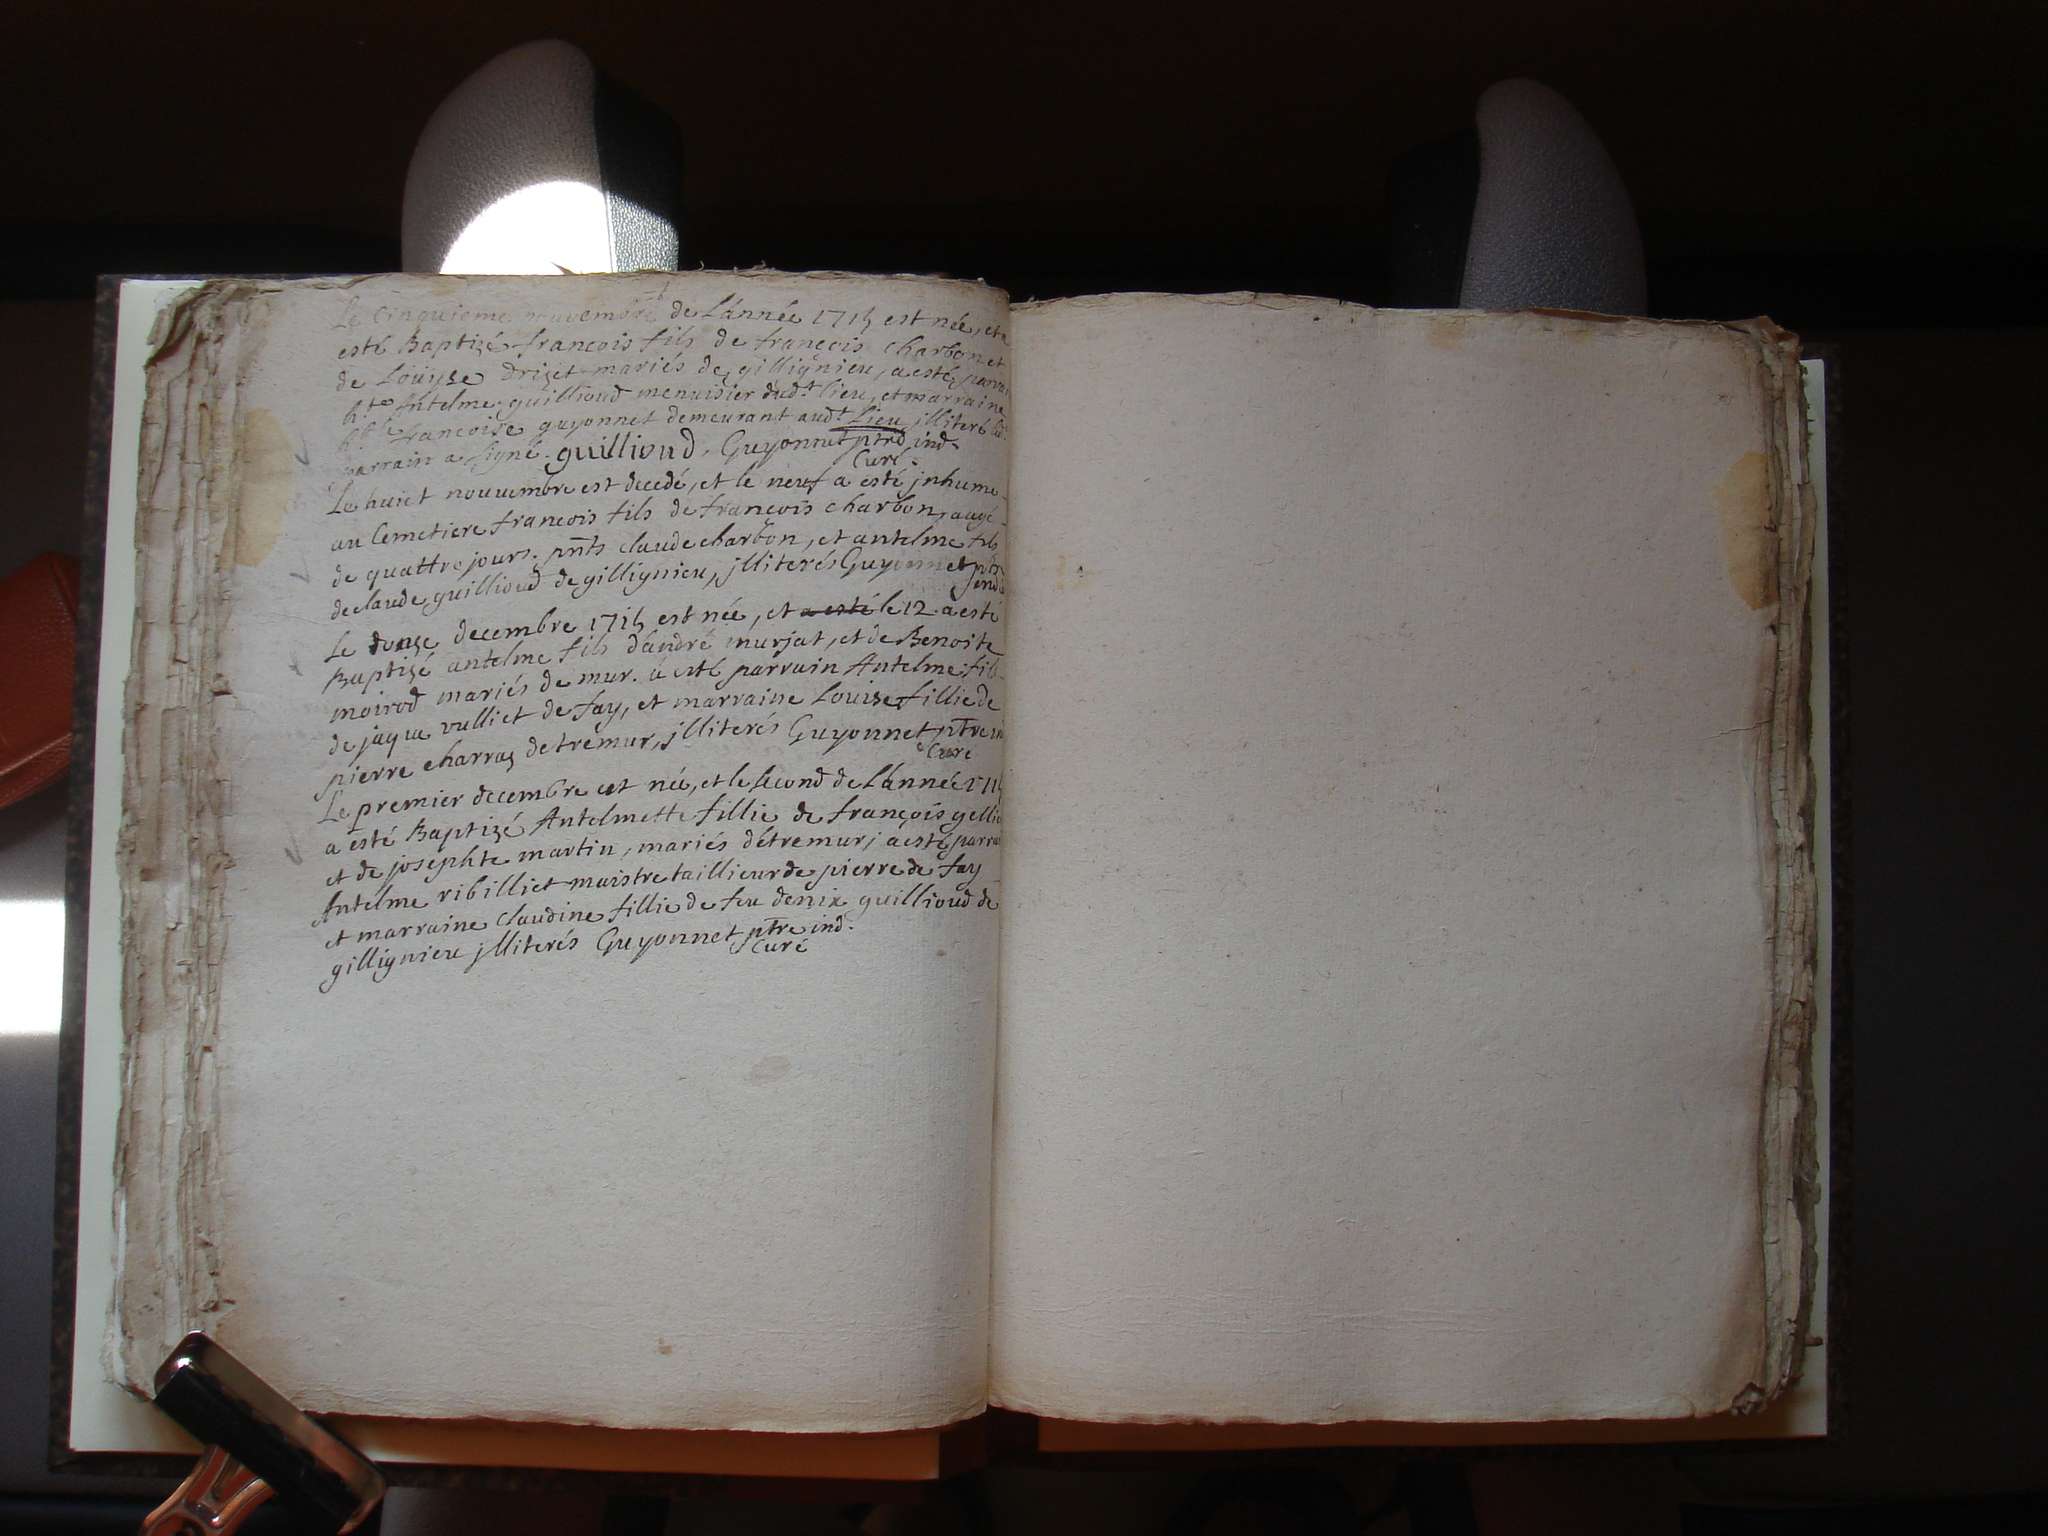 Le Cinquieme nouvembre de Lánnée 1715 est née, et a
esté Baptizé francois fils de francois charbon et
de Loüyse Drizet mariés de gillignieu, a esté parrain
h.te Antelme guillioud menuisier dud.t lieu, et marraine
h.ble francoise guyonnet demeurant aud.t Lieu illiteré led.
parrain a signé. guillioud, Guyonnet ptre ind.
Curé.
Le huict nouvembre est decedé, et le neuf a esté jnhume
au Cemetiere francois fils de francois charbon, aagé
de quattre jours. pnts claude charbon, et antelme fils
de claude guillioud de gillignieu, jlliterés Guyonnet ptre
ind
Le donze decembre 1715 est née, et a esté le 12 a esté
Baptizé antelme fils dándré murjat, et de Benoite
moirod mariés de mur. á esté parrain Antelme fils
de jaque vulliet de fay, et marraine Louise fillie de
pierre charraz detremur, jlliterés Guyonnet ptre in
Curé
Le premier decembre est née, et le second de Lánnée 1715
a esté Baptizé Antelmette fillie de françois gellio
et de josephte martin, mariés détremur, a esté parra
Antelme ribilliet maistre taillieur de pierre de fay
et marraine claudine fillie de feu denix guillioud de
gillignieu jlliterés Guyonnet ptre ind.
Curé